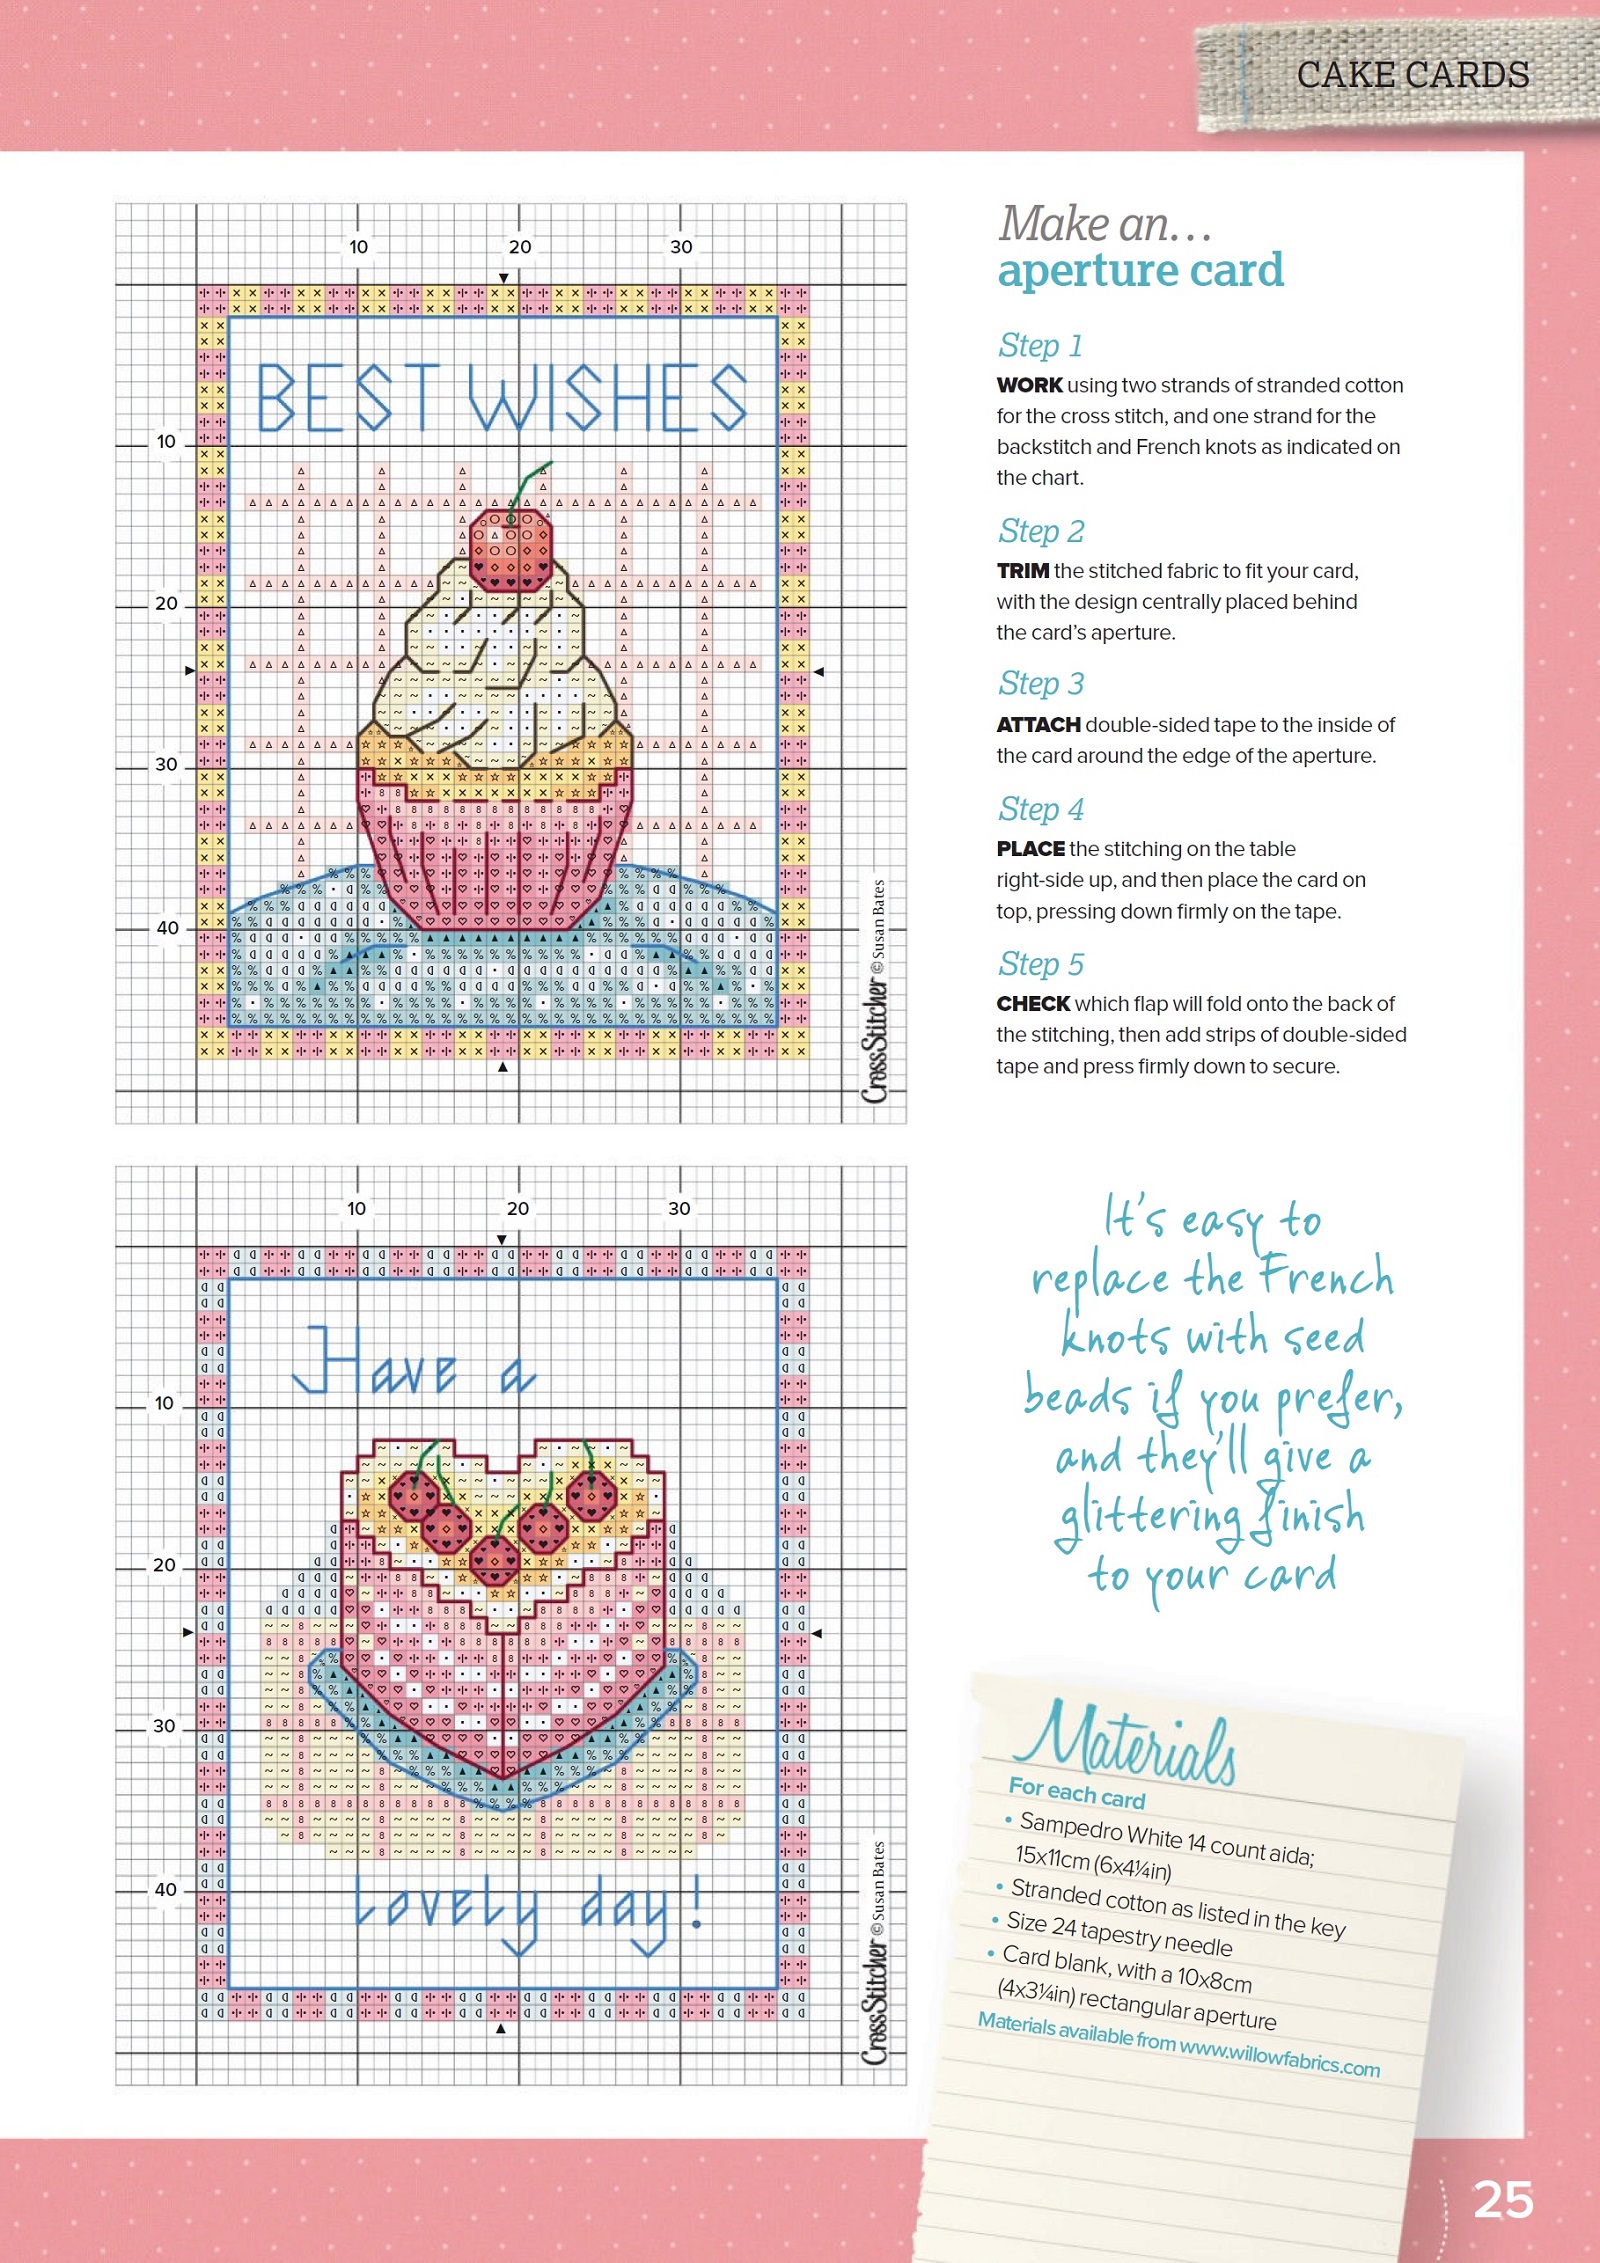 CAKE CARDS
10 20 30
BEST WISHES
10
20
30
40
CrossStitcher © Susan Bates
10 20 30
Have a
10
20
30
40
Lovely day!
CrossStitcher © Susan Bates
Make an...
aperture card
Step 1
WORK using two strands of stranded cotton
for the cross stitch, and one strand for the
backstitch and French knots as indicated on
the chart.
Step 2
TRIM the stitched fabric to fit your card,
with the design centrally placed behind
the card's aperture.
Step 3
ATTACH double-sided tape to the inside of
the card around the edge of the aperture.
Step 4
PLACE the stitching on the table
right-side up, and then place the card on
top, pressing down firmly on the tape.
Step 5
CHECK which flap will fold onto the back of
the stitching, then add strips of double-sided
tape and press firmly down to secure.
It's easy to
replace the French
knots with seed
beads if you prefer,
and they'll give a
glittering finish
to your card
Materials
For each card
• Sampedro White 14 count aida;
15x11cm (6x4¼in)
• Stranded cotton as listed in the key
• Size 24 tapestry needle
• Card blank, with a 10x8cm
(4x3¼in) rectangular aperture
Materials available from www.willowfabrics.com
25